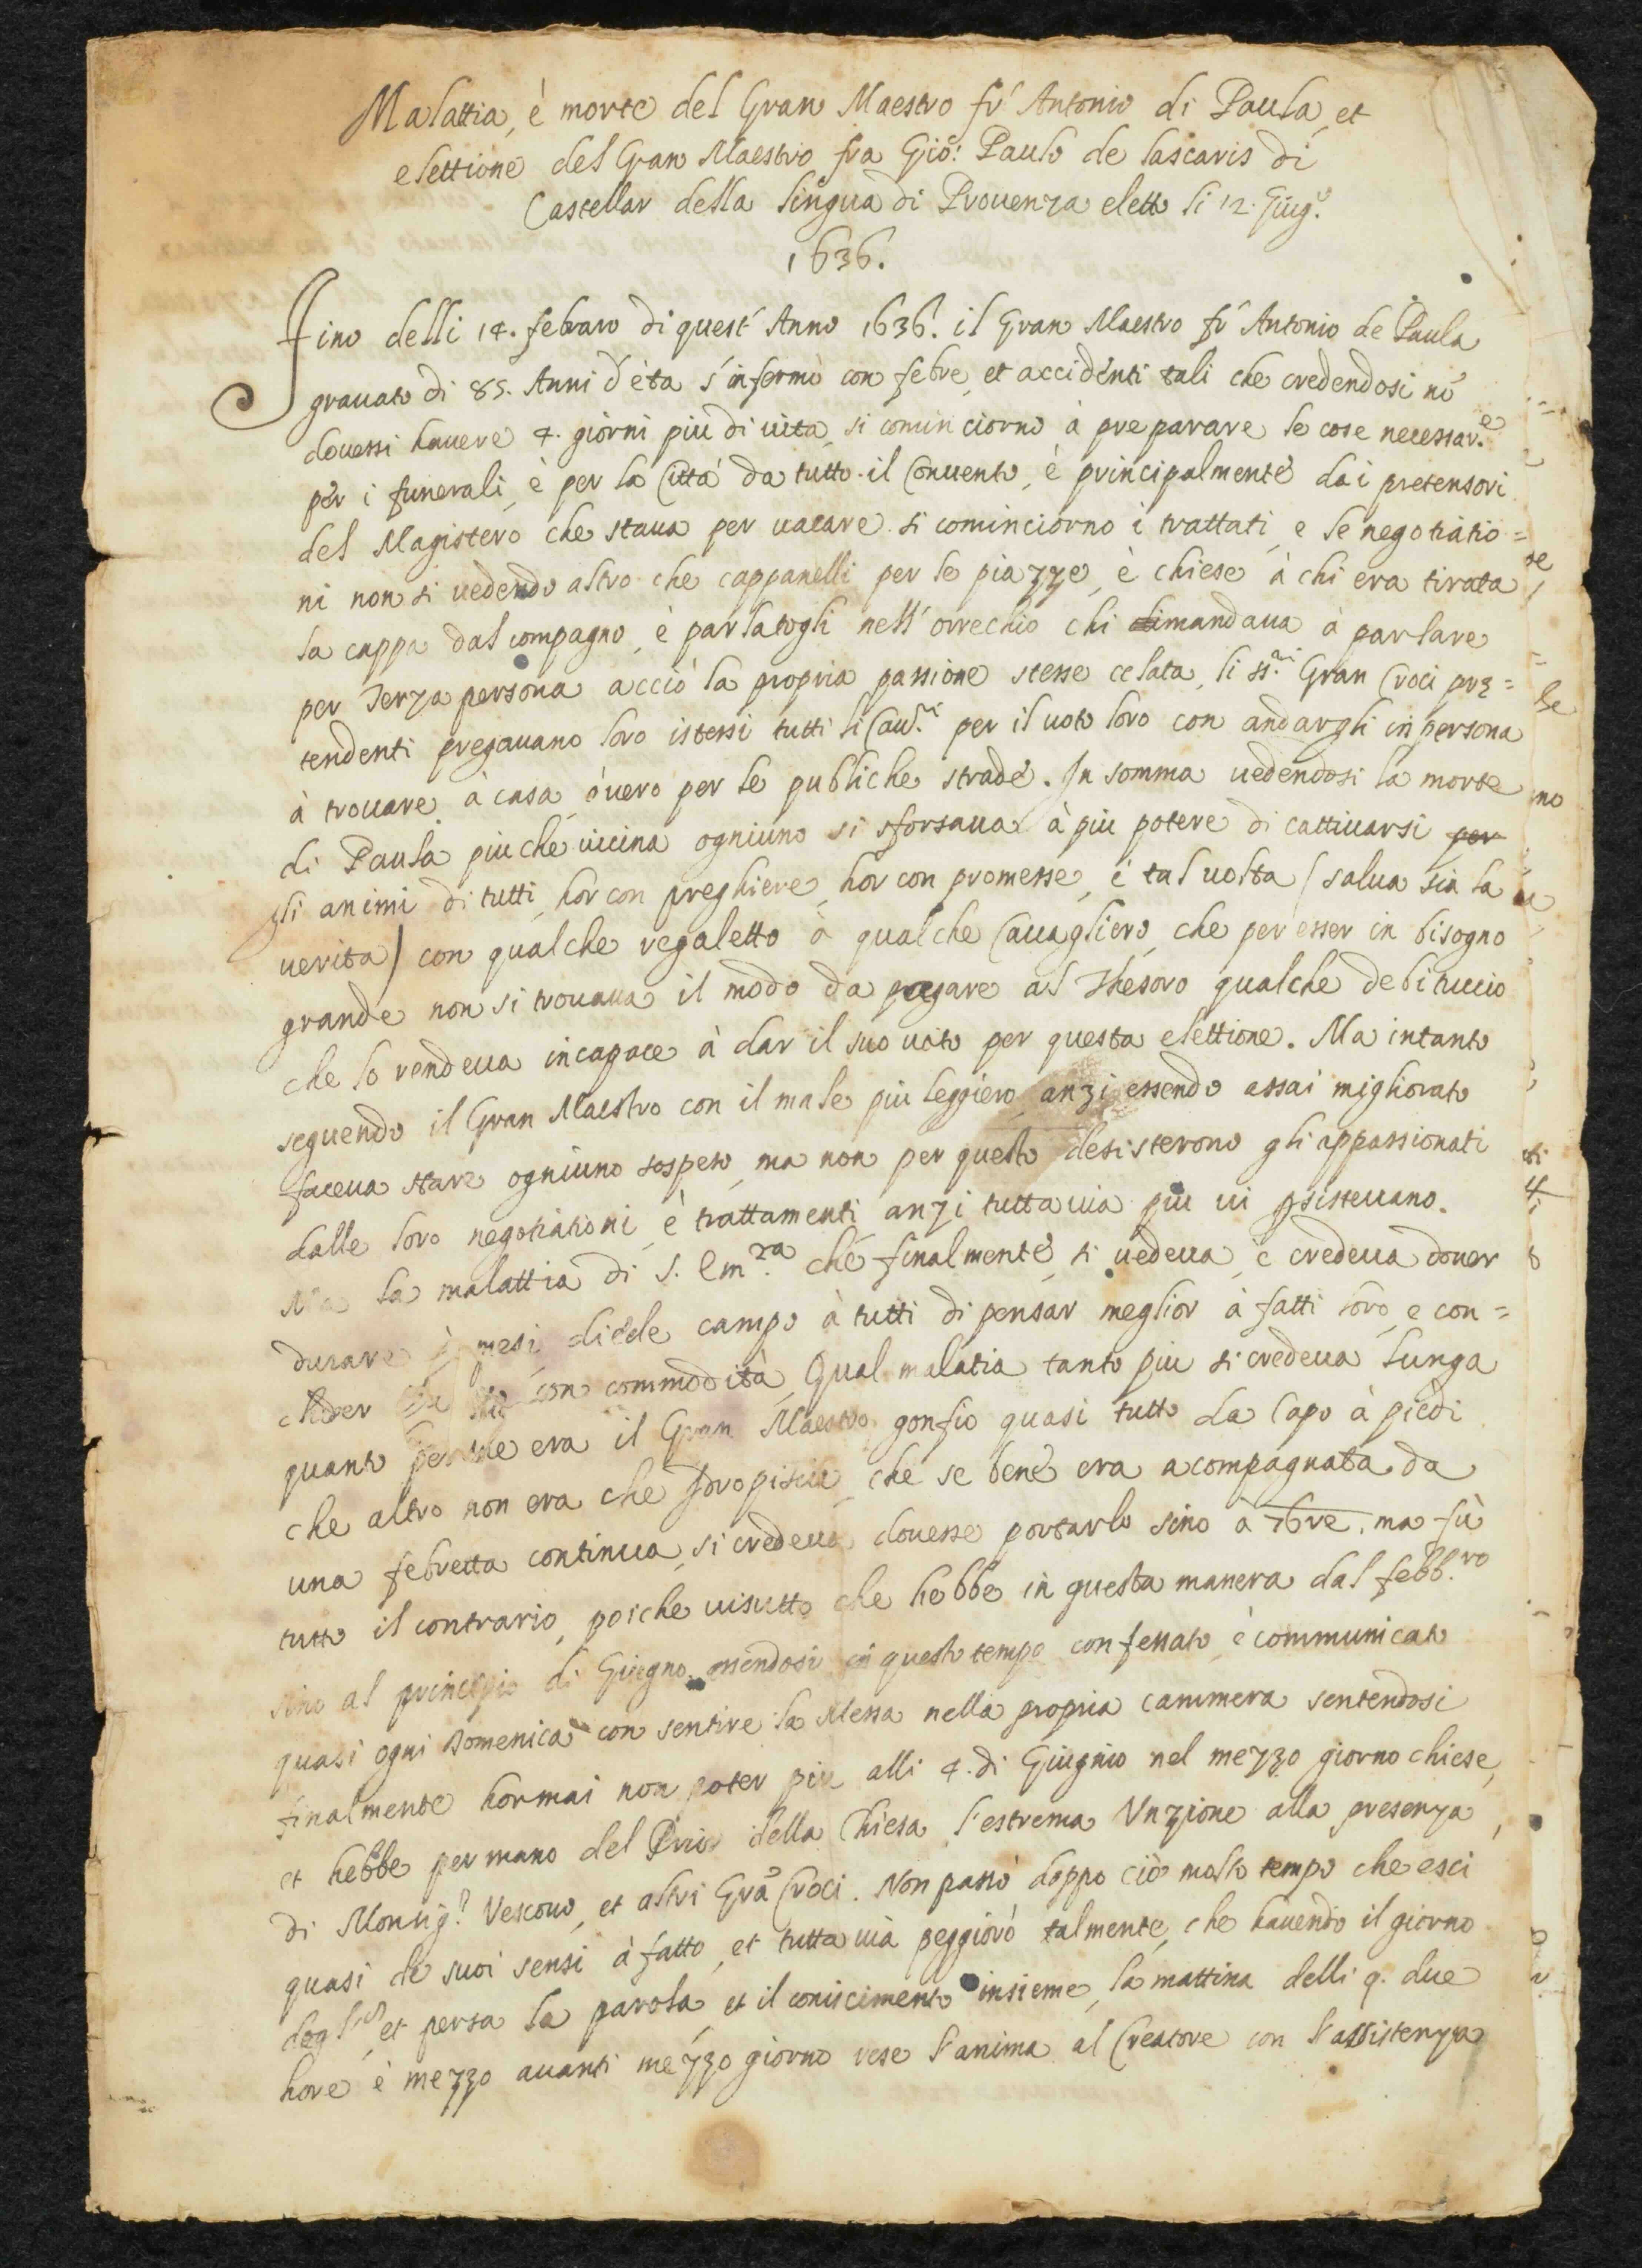 Malattia, è morte del Gran Maestro fr' Antonio di Paula, et
elettione del Gran Maestro fra Gio: Paulo de Lascaris di
Castellar della lingua di Prouenza eletto li 12. Giug.o
1636.
Fino delli 14. febraro di quest' Anno 1636. il Gran Maestro fr' Antonio de Paula
grauato di 85. Anni d'età s'infermò con febre, et accidenti tali che credendosi nō
douessi hauere 4. giorni più di uita, si cominciorno à preparare le cose necessar.e
per i funerali, è per la Città da tutto il Conuento, è principalmente dai pretensori
del Magistero che staua per uacare si cominciorno i trattati, e le negotiatio=
ni non si uedendo altro che cappanelli per le piazze, è chiese à chi era tirata
la cappa dal compagno, è parlatogli nell' orrechio chi dimandaua à parlare
per Terza persona acciò la propria passione stesse celata, li ss.ri Gran Croci pre=
tendenti pregauano loro istessi tutti li Cau.ri per il uoto loro con andargli in persona
à trouare à casa, ouero per le publiche strade. In somma uedendosi la morte
di Paula più che uicina ogniuno si sforsaua à più potere di cattiuarsi per
gli animi di tutti, hor con preghiere, hor con promesse, è tal uolta (salua sia la
uerita) con qualche regaletto à qualche Cauagliero, che per esser in bisogno
grande non si trouaua il modo da pagare al Thesoro qualche debituccio
che lo rendeua incapace à dar il suo uoto per questa elettione. Ma intanto
seguendo il Gran Maestro con il male più leggiero, anzi essendo assai migliorato
faceua stare ogniuno sospeso, ma non per questo desisterono gli appassionati
dalle loro negotiationi, è trattamenti, anzi tuttauia più ui psisteuano.
Ma la malattia di S. Em.za che finalmente si uedeua, è credeua douer
durare mesi, diede campo à tutti di pensar meglior à fatti loro, e con=
con commodità, Qual malatia tanto più si credeua lunga
quanto perche era il Gran Maestro gonfio quasi tutto da Capo à piedi
che altro non era che Idropisia, che se bene era acompagnata da
una febretta continua, si credeua douesse portarlo sino à 7bre. ma fù
tutto il contrario, poiche uisutto che hebbe in questa manera dal febb.ro
sino al principio di Giugno essendosi in questo tempo confessato, è communicato
quasi ogni Domenica con sentire la Messa nella propria cammera sentendosi
finalmente hormai non poter più alli 4. di Giugnio nel mezzo giorno chiese,
et hebbe per mano del Prior della Chiesa l'estrema Unzione alla presenza,
di Monsig.r Vescouo, et altri Grā Croci. Non passò doppo ciò molto tempo che esci
quasi de suoi sensi à fatto, et tutta uia peggiorò talmente, che hauendo il giorno
degl' 8 et persa la parola, et il coniscimento insieme, la mattina delli 9. due
hore è mezzo auanti mezzo giorno rese l'anima al Creatore con l'assistenza